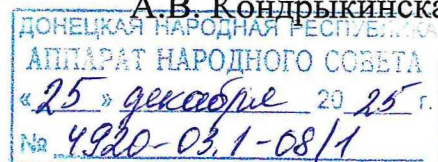 А.В. Кондрыкинска
ДОНЕЦКАЯ НАРОДНАЯ РЕСПУБЛИКА
АППАРАТ НАРОДНОГО СОВЕТА
«25» декабря 2025 г.
№ 4920-03.1-08/1